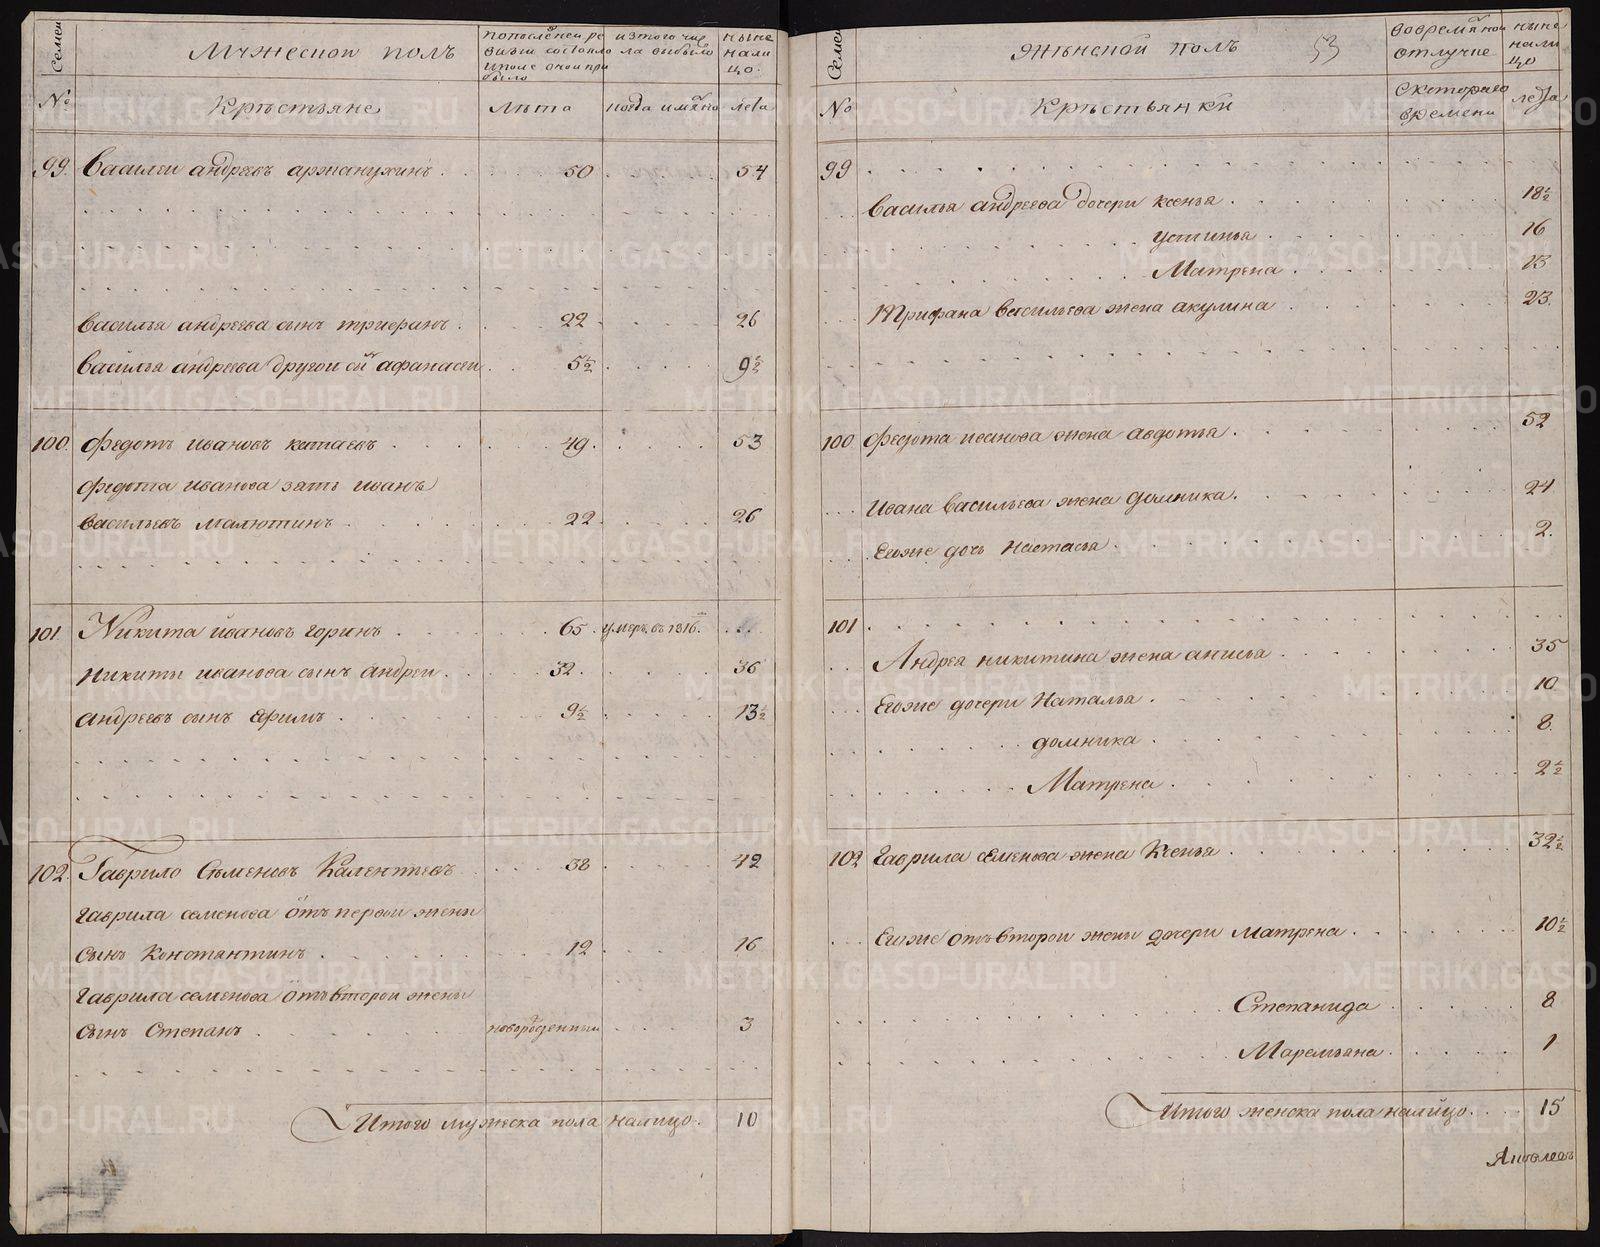 Семеи
Мужескои полъ
попоследнеи ре
визии состояло
ипосле онои при
было
изтого чис
ла выбыло
ныне
нали
цо.
№
Крестьяне
Лѣта
когда имянно
лета
99. Василеи андреевъ аржанухинъ. 50 54
Василья андреева сынъ трифанъ. 22 26
Василья андреева другои сынъ афанасеи 5½ 9½
100. Федотъ ивановъ катаевъ 49. 53
Федота иванова зять иванъ
васильевъ малютинъ 22 26
101. Никита ивановъ горинъ 65. умеръ въ 1816.
никиты иванова сынъ андреи 32. 36
андреевъ сынъ ефимъ 9½ 13½
102. Гаврило Семеновъ Калентьевъ 38 42
гаврила семенова отъ первои жены
сынъ Константинъ 12 16
гаврила семенова отъ второи жены
сынъ Степанъ новорожденныи 3
Итого мужеска пола налицо. 10
Семеи
женскои полъ
53
вовременнои
отлучке
ныне
нали
цо
№
Крестьянки
скотораго
времени
лета
99
Василья андреева дочери ксенья 18½
устинья 16
Матрена 13
Трифана васильева жена акулина 23.
100 Федота иванова жена авдотья 52
Ивана васильева жена домника. 24
Егоже дочь Настасья 2.
101
Андрея никитина жена анисья 35
Егоже дочери Наталья 10
домника 8.
Матрена 2½
102 Гаврила семенова жена Ксенья 32½
Егоже отъ второи жены дочери матрена 10½
Степанида 8
Маремьяна 1
Итого женска пола налицо 15
METRIKI.GASO-URAL.RU